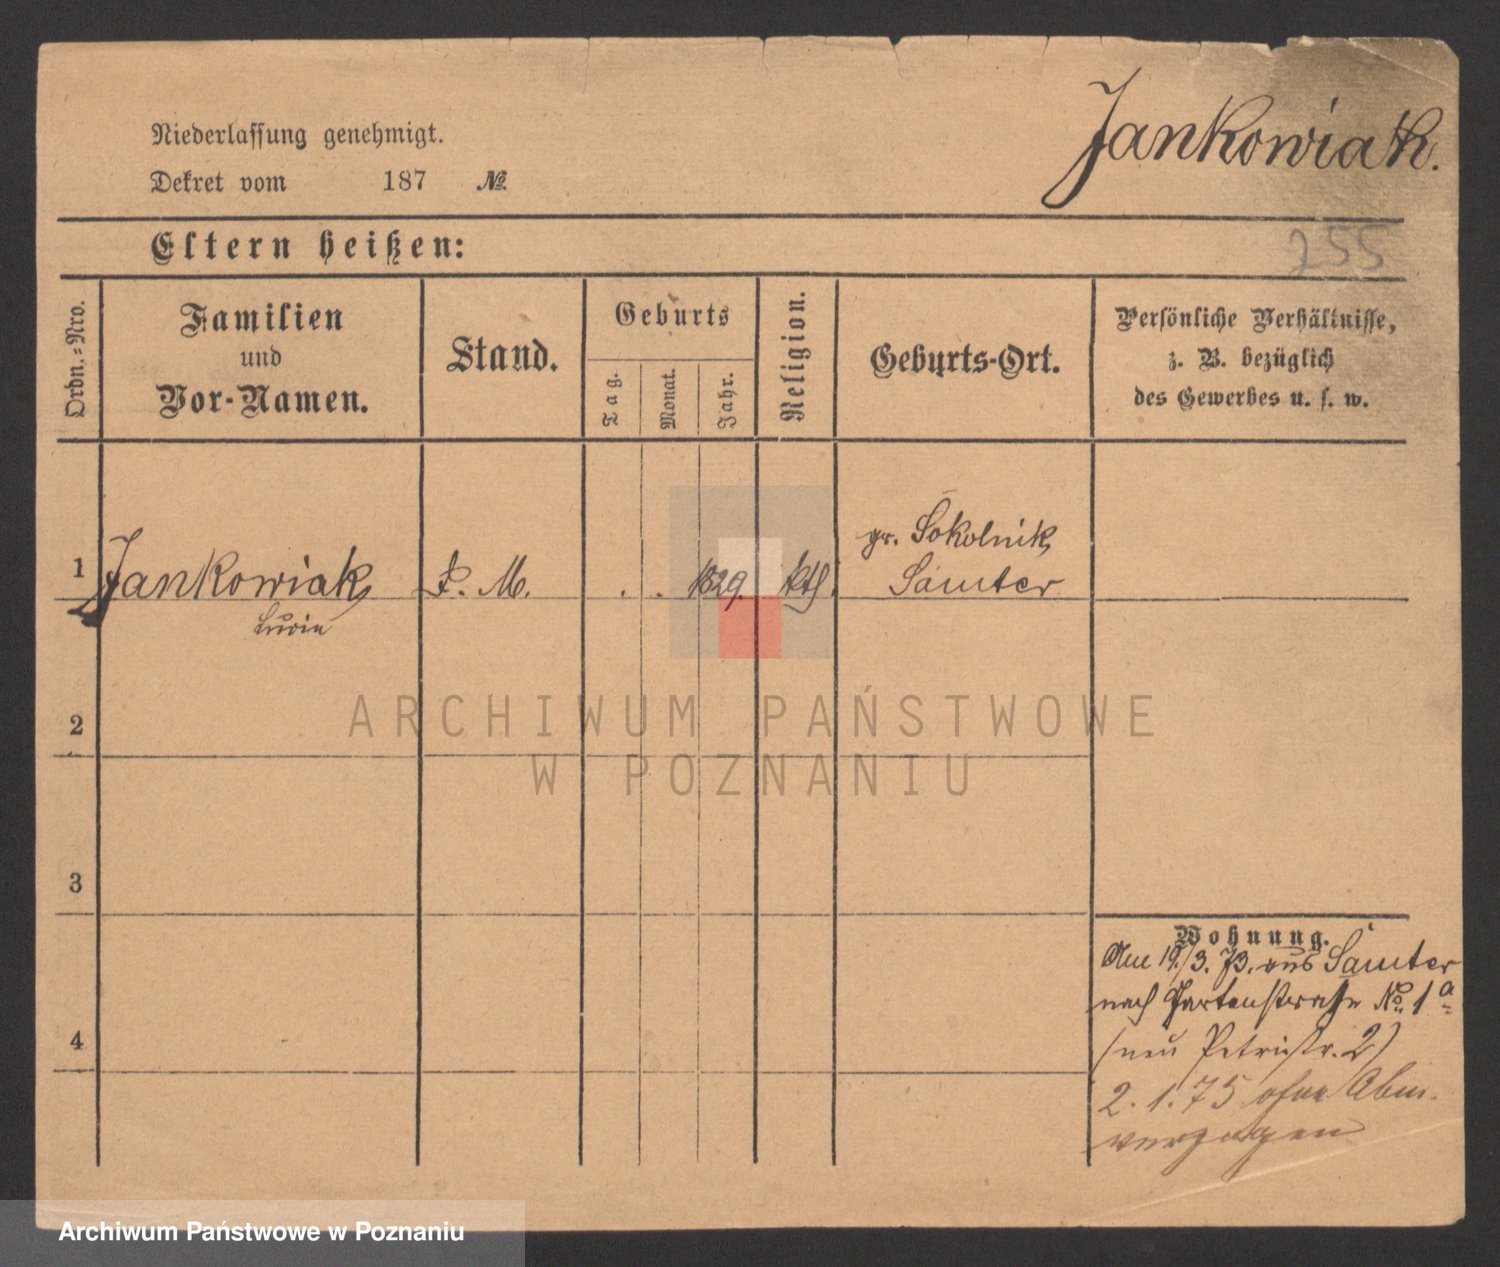 Niederlassung genehmigt.
Jankowiak.
Dekret vom 187 №
Eltern heißen:
255
Ordn.=Nro.
Familien
und
Vor-Namen.
Stand.
Geburts
Tag.
Monat.
Jahr.
Religion.
Geburts-Ort.
Persönliche Verhältnisse,
z. B. bezüglich
des Gewerbes u. s. w.
1 Jankowiak . . 1829. kth. gr. Sokolnik
Samter
2
3
4
Wohnung.
Am 19./3. 73. aus Samter
nach Gartenstraße No. 1 a
(neu Petristr. 2)
2. 1. 75 ohne Abm.
verzogen
ARCHIWUM PAŃSTWOWE
W POZNANIU
Archiwum Państwowe w Poznaniu